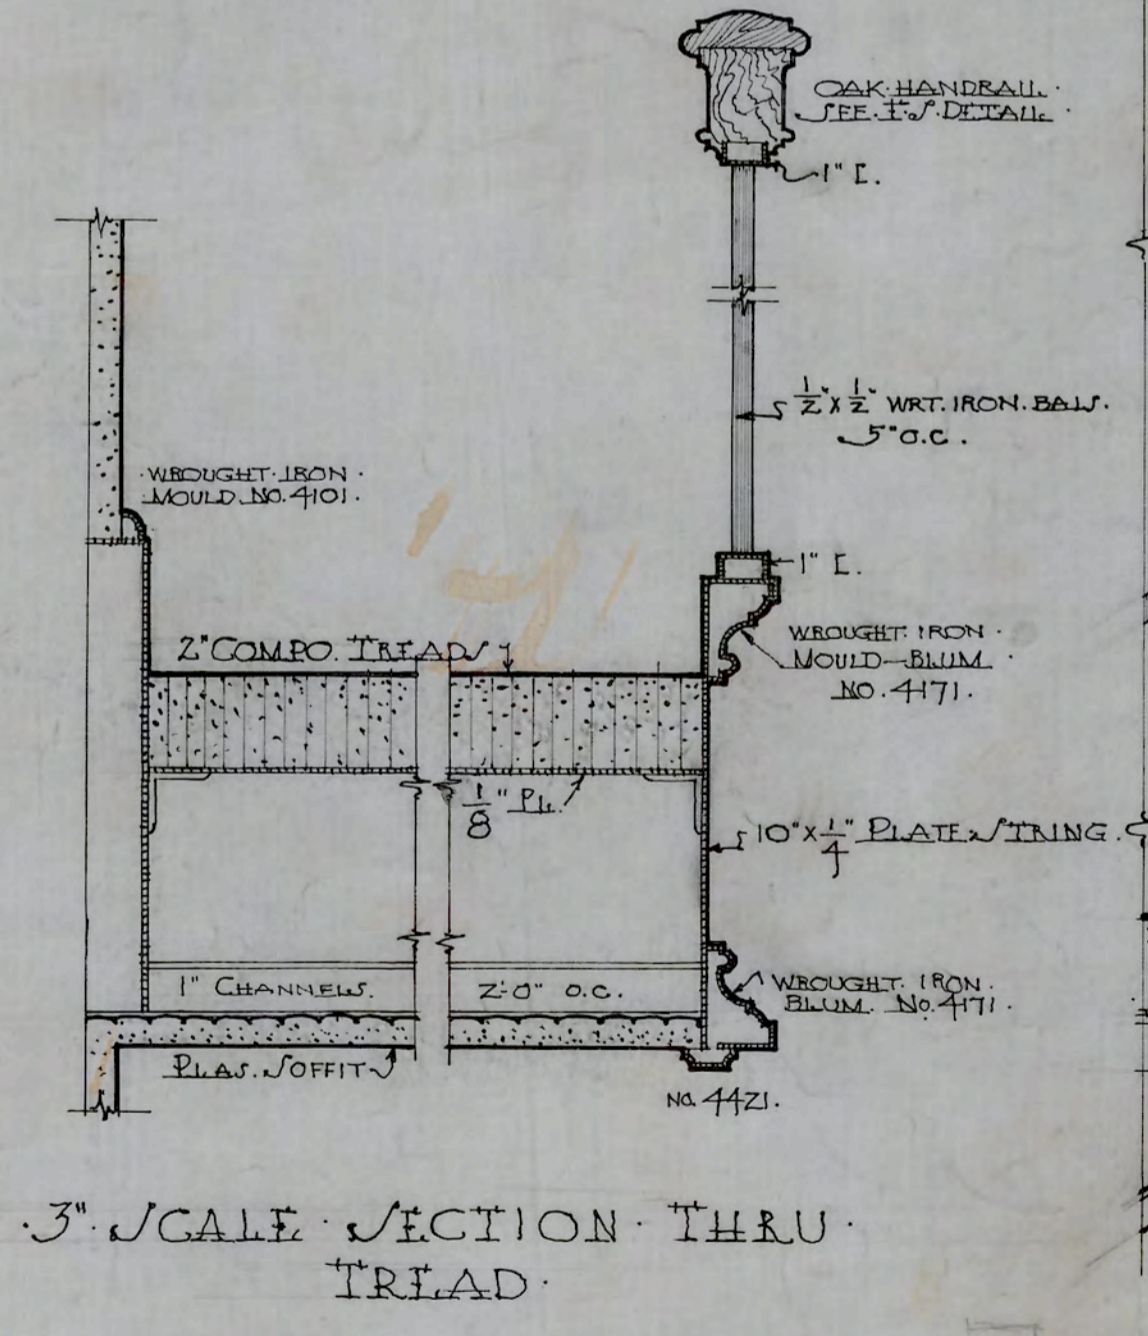 OAK HANDRAIL.
SEE F.S. DETAIL.
1" [.
1/2" X 1/2" WRT. IRON. BALS.
5" O.C.
WROUGHT IRON
MOULD NO. 4101.
1" [.
2" COMPO. TREADS
WROUGHT IRON
MOULD - BLUM
NO. 4171.
1/8" PL.
10" X 1/4" PLATE STRING.
1" CHANNELS. 2'-0" O.C.
WROUGHT IRON.
BLUM. NO. 4171.
PLAS. SOFFIT
NO. 4421.
3" SCALE SECTION THRU
TREAD